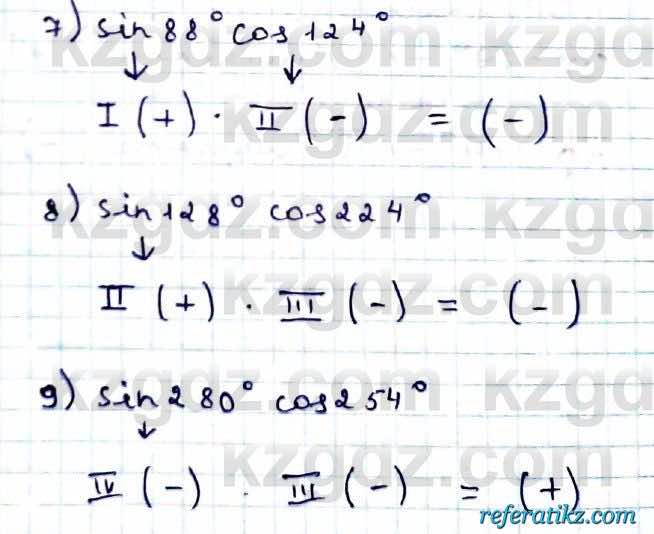 7) sin 88° cos 124°
↓ ↓
I (+) · II (-) = (-)
8) sin 128° cos 224°
↓
II (+) · III (-) = (-)
9) sin 280° cos 254°
↓
IV (-) · III (-) = (+)
kzgdz.com
referatikz.com